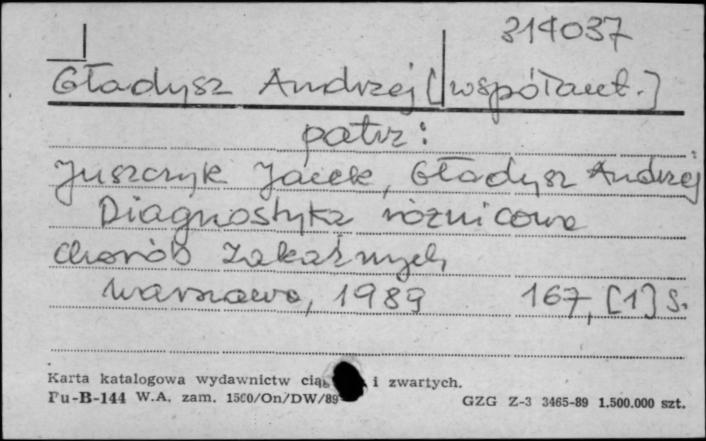 314037
Gładysz Andrzej [współaut.]
patrz:
Juszczyk Jacek, Gładysz Andrzej
Diagnostyka różnicowa
chorób zakaźnych
Warszawa, 1989 167, [1] s.
Karta katalogowa wydawnictw i zwartych.
Pu-B-144 W.A. zam. 1500/On/DW/89 GZG Z-3 3465-89 1.500.000 szt.